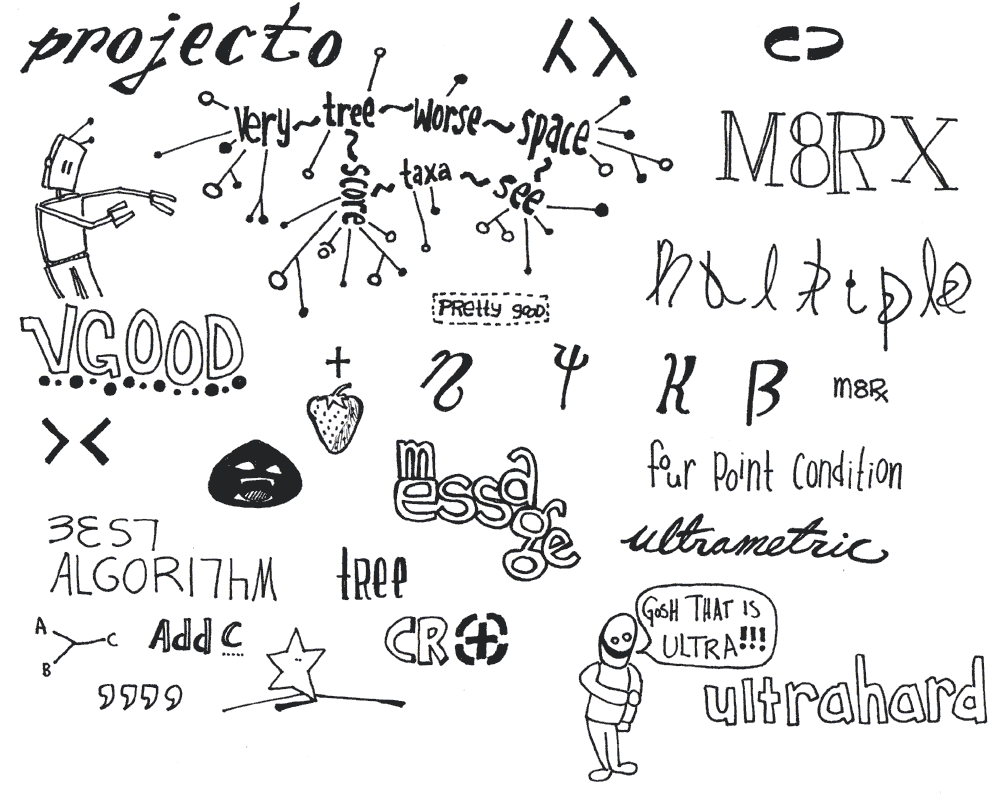 projecto
⅄ λ
very ~ tree ~ worse ~ space
score ~ taxa ~ see
M8RX
multiple
PREtty gooD
VGOOD
+
η ψ κ β m8Rx
> <
message
four Point Condition
BEST
ALGORIThM
tREE
ultrametric
A
B
C
Add C
CR
GOSH THAT IS
ULTRA!!!
,,,,
ultrahard